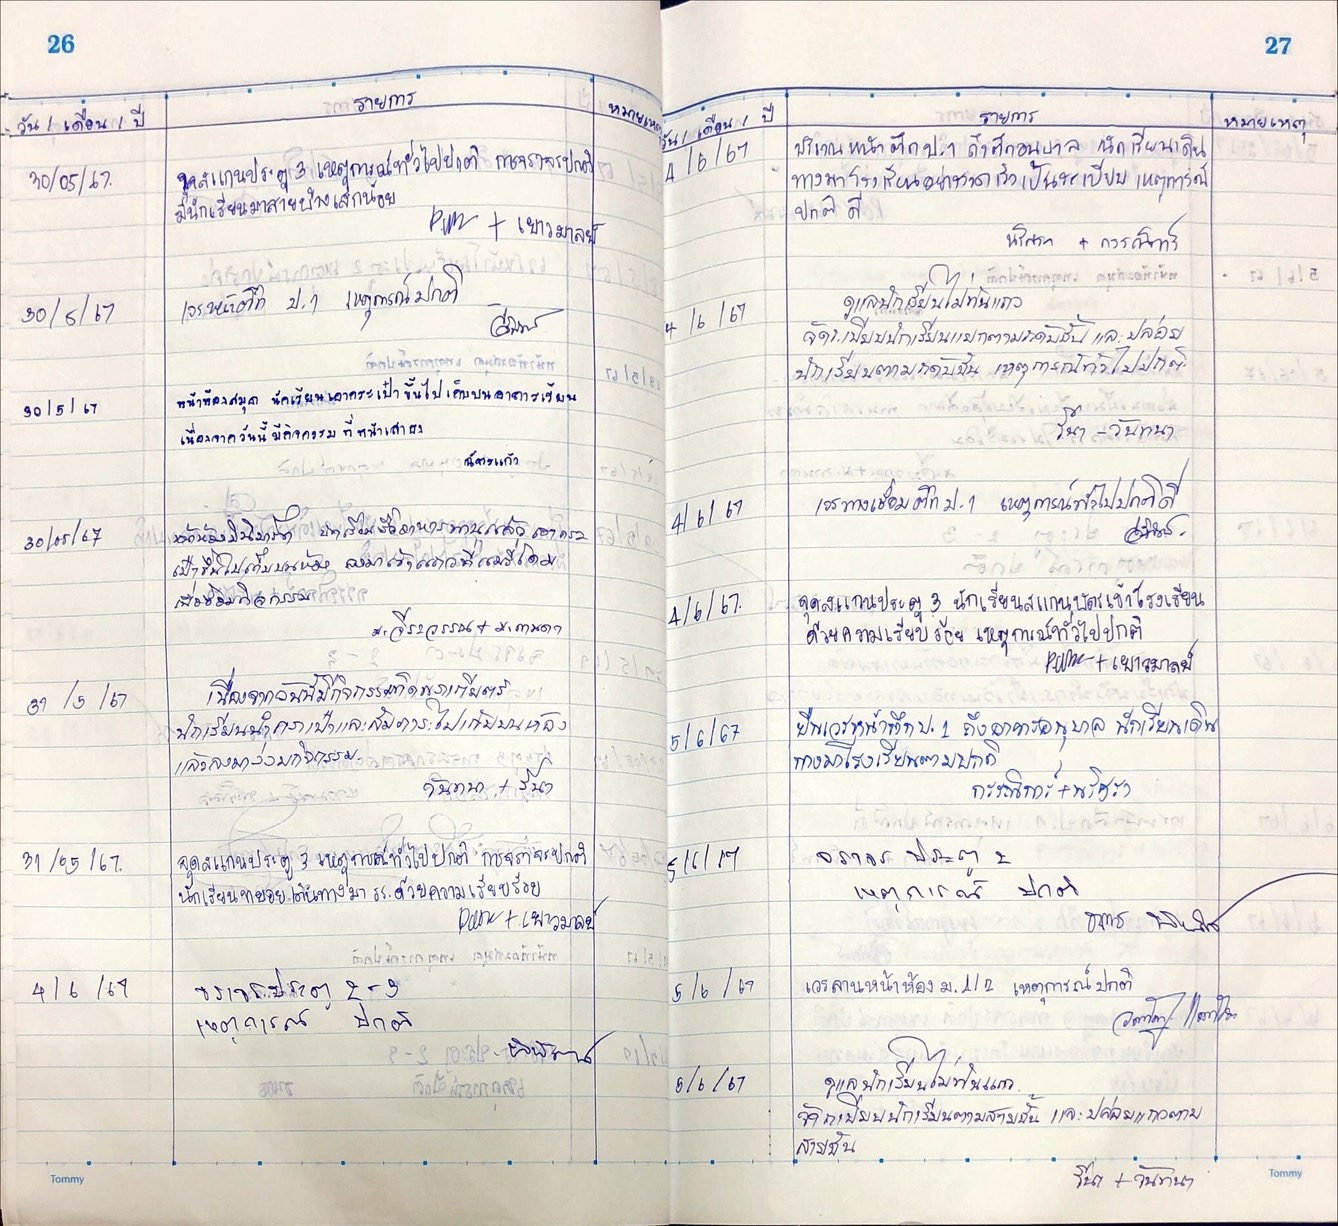 26
วัน / เดือน / ปี
รายการ
หมายเหตุ
30/05/67.
จุดสแกนประตู 3 เหตุการณ์ทั่วไปปกติ การจราจรปกติ
มีนักเรียนมาสายบ้างเล็กน้อย
+ เยาวมาลย์
30/5/67
เวรหน้าตึก ป.1 เหตุการณ์ปกติ
30/5/67
หน้าห้องสมุด นักเรียนเอากระเป๋าขึ้นไปเก็บบนอาคารเรียน
เนื่องจากวันนี้มีกิจกรรมที่หน้าเสาธง
30/05/67
เป๋าขึ้นไปเก็บบนห้อง ลงมาเข้าแถวที่
เพื่อร่วมกิจกรรม
ม.จีรวรรณ + ม.กานดา
31/5/67
เนื่องจากวันนี้มีกิจกรรม
นักเรียนนำกระเป๋าและสัมภาระไปเก็บบนห้อง
แล้วลงมาร่วมกิจกรรม
วันทนา + รีนา
31/05/67.
จุดสแกนประตู 3 เหตุการณ์ทั่วไปปกติ การจราจรปกติ
นักเรียนทยอยเดินทางมา รร. ด้วยความเรียบร้อย
+ เยาวมาลย์
4/6/67
จราจรประตู 2-3
เหตุการณ์ ปกติ
Tommy
27
วัน / เดือน / ปี
รายการ
หมายเหตุ
4/6/67
บริเวณหน้าตึก ป.1 ถึงตึกอนุบาล นักเรียนเดิน
ทางมาโรงเรียนอย่างรวดเร็ว เป็นระเบียบ เหตุการณ์
ปกติ ดี
นริศรา + กรรณิการ์
4/6/67
ดูแลนักเรียนไม่ทันแถว
จัดระเบียบนักเรียนแยกตามระดับชั้น และปล่อย
นักเรียนตามระดับชั้น เหตุการณ์ทั่วไปปกติ
รีนา - วันทนา
4/6/67
เวรทางเชื่อมตึก ป.1 เหตุการณ์ทั่วไปปกติดี
4/6/67.
จุดสแกนประตู 3 นักเรียนสแกนบัตรเข้าโรงเรียน
ด้วยความเรียบร้อย เหตุการณ์ทั่วไปปกติ
+ เยาวมาลย์
5/6/67
ยืนเวรหน้าตึก ป.1 ถึงอาคารอนุบาล นักเรียนเดิน
ทางมาโรงเรียนตามปกติ
กรรณิการ์ + นริศรา
5/6/67
จราจร ประตู 2
เหตุการณ์ ปกติ
5/6/67
เวรลานหน้าห้อง ม.1/2 เหตุการณ์ปกติ
5/6/67
ดูแลนักเรียนไม่ทันแถว.
จัดระเบียบนักเรียนตามสายชั้น และปล่อยแถวตาม
สายชั้น
รีนา + วันทนา
Tommy